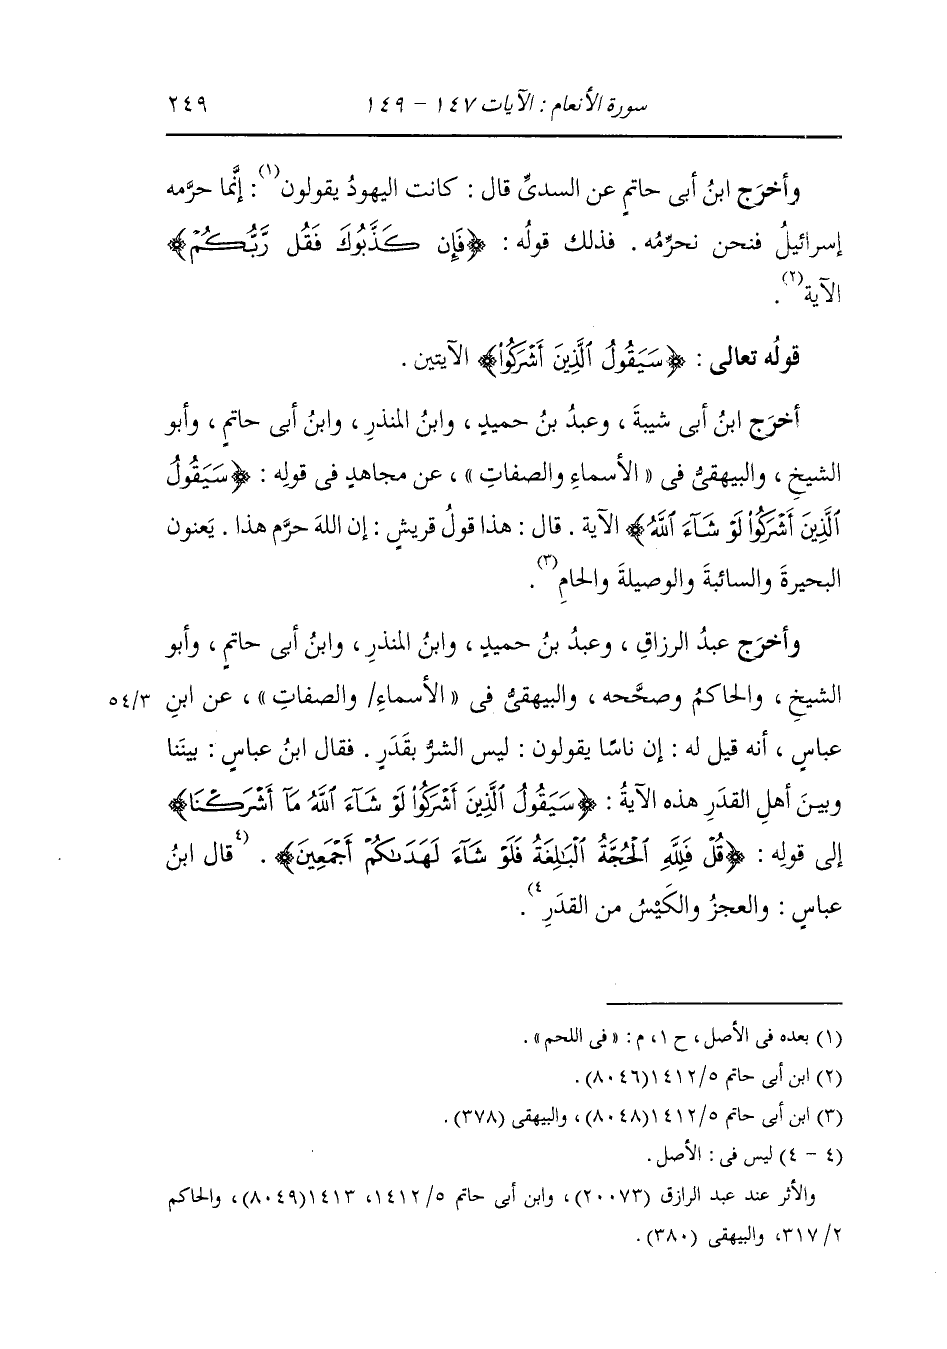 سورة الأنعام : الآيات ١٤٧ – ١٤٩ ٢٤٩
وأخرَج ابنُ أبى حاتمٍ عن السدىِّ قال : كانت اليهودُ يقولون(١) : إنَّما حرَّمه
إسرائيلُ فنحن نحرِّمُه . فذلك قولُه : ﴿فَإِن كَذَّبُوكَ فَقُل رَّبُّكُمْ﴾
الآية(٢) .
قولُه تعالى : ﴿سَيَقُولُ ٱلَّذِينَ أَشْرَكُواْ﴾ الآيتين .
أخرَج ابنُ أبى شيبةَ ، وعبدُ بنُ حميدٍ ، وابنُ المنذرِ ، وابنُ أبى حاتمٍ ، وأبو
الشيخِ ، والبيهقىُّ فى « الأسماءِ والصفاتِ » ، عن مجاهدٍ فى قولِه : ﴿سَيَقُولُ
ٱلَّذِينَ أَشْرَكُواْ لَوْ شَآءَ ٱللَّهُ﴾ الآية . قال : هذا قولُ قريشٍ : إن اللهَ حرَّم هذا . يَعنون
البحيرةَ والسائبةَ والوصيلةَ والحامِ(٣) .
وأخرَج عبدُ الرزاقِ ، وعبدُ بنُ حميدٍ ، وابنُ المنذرِ ، وابنُ أبى حاتمٍ ، وأبو
الشيخِ ، والحاكمُ وصحَّحه ، والبيهقىُّ فى « الأسماءِ/ والصفاتِ » ، عن ابنِ ٥٤/٣
عباسٍ ، أنه قيل له : إن ناسًا يقولون : ليس الشرُّ بقَدَرٍ . فقال ابنُ عباسٍ : بينَنا
وبينَ أهلِ القدَرِ هذه الآيةُ : ﴿سَيَقُولُ ٱلَّذِينَ أَشْرَكُواْ لَوْ شَآءَ ٱللَّهُ مَآ أَشْرَكْنَا﴾
إلى قولِه : ﴿قُلْ فَلِلَّهِ ٱلْحُجَّةُ ٱلْبَٰلِغَةُ فَلَوْ شَآءَ لَهَدَىٰكُمْ أَجْمَعِينَ﴾ . (٤قال ابنُ
عباسٍ : والعجزُ والكَيْسُ من القدَرِ٤) .
(١) بعده فى الأصل ، ح ١ ، م : « فى اللحم » .
(٢) ابن أبى حاتم ١٤١٢/٥ (٨٠٤٦) .
(٣) ابن أبى حاتم ١٤١٢/٥ (٨٠٤٨) ، والبيهقى (٣٧٨) .
(٤ – ٤) ليس فى : الأصل .
والأثر عند عبد الرازق (٢٠٠٧٣) ، وابن أبى حاتم ١٤١٢/٥، ١٤١٣ (٨٠٤٩) ، والحاكم
٣١٧/٢، والبيهقى (٣٨٠) .